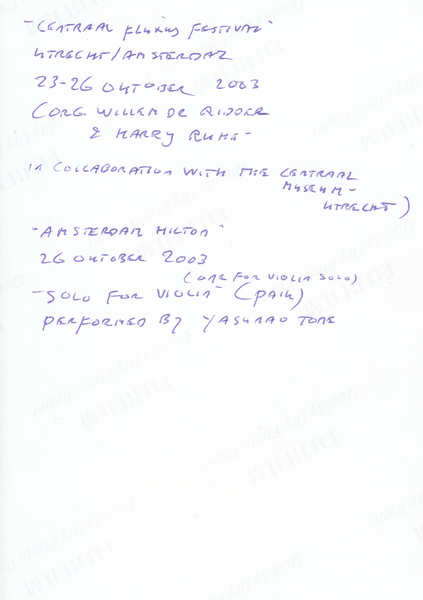 "CENTRAAL FLUXUS FESTIVAL"
UTRECHT/AMSTERDAM
23-26 OKTOBER 2003
(ORG. WILLEM DE RIDDER
& HARRY RUHE -
IN COLLABORATION WITH THE CENTRAAL
MUSEUM -
UTRECHT)
"AMSTERDAM HILTON"
26 OKTOBER 2003
(ONE FOR VIOLIN SOLO)
"SOLO FOR VIOLIN" (PAIK)
PERFORMED BY YASUNAO TONE
Quality Dry Photo Paper
FUJIFILM